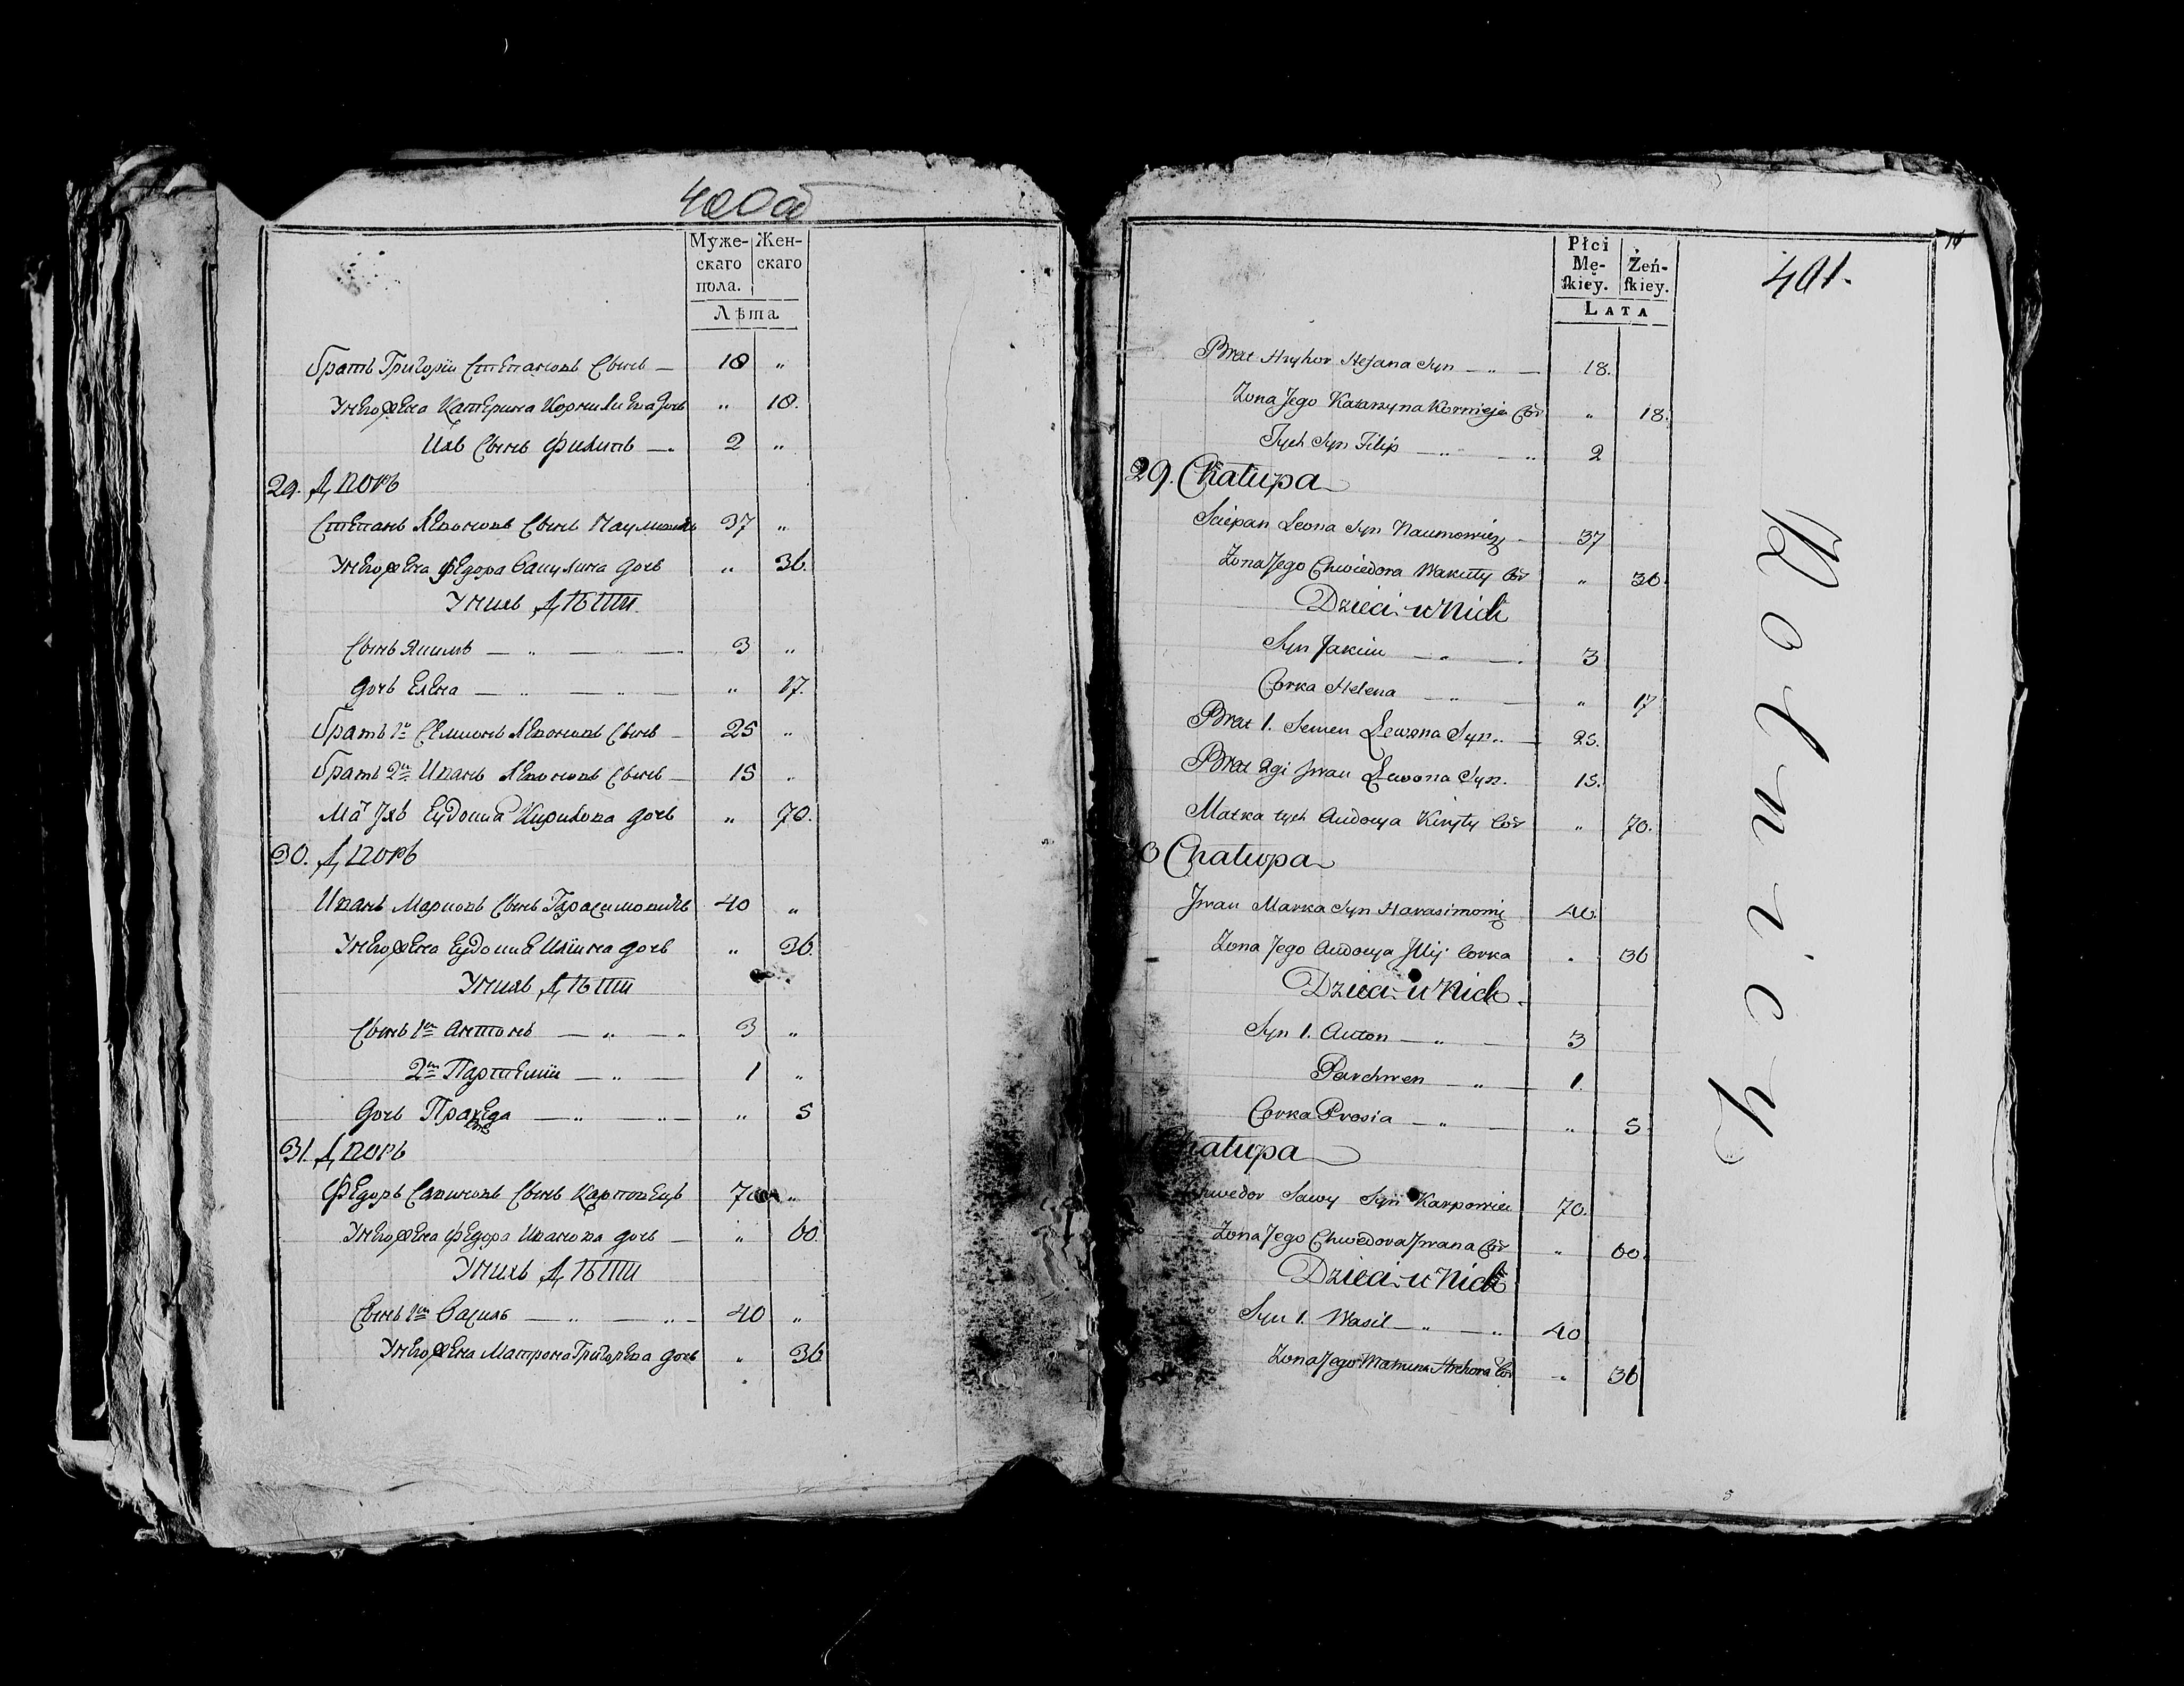 400об
Муже- Жен-
скаго скаго
пола.
Лѣта
братъ Григорiй Степановъ Сынъ — 18 „
У него Жена Катерина Корнилиева дочь „ 18.
Ихъ Сынъ Филипъ — 2 „
29. Дворъ
Степанъ Левоновъ Сынъ Наумовичъ 37 „
У него Жена Федора Вакулина дочь „ 36.
У нихъ Дѣти
Сынъ Якимъ — „ — „ — 3 „
дочь Елена — „ — „ — „ 17.
братъ 1й Семионъ Левоновъ Сынъ — 25 „
братъ 2й Иванъ Левоновъ Сынъ — 15 „
Ма Ихъ Еудокиа Кирилова дочь „ 70.
30. Дворъ
Иванъ Марковъ Сынъ Гарасимовичъ 40 „
У него Жена Еудокиа Илiина дочь „ 36.
У нихъ Дѣти
Сынъ 1й Антонъ — „ — „ 3 „
2й Партемiи — „ — 1 „
дочь — „ — „ — „ 5
31. Дворъ
Федоръ Савиновъ Сынъ Карповецъ 70 „
У него Жена Федора Иванова дочь — „ 60.
У нихъ Дѣти
Сынъ 1й Василь — „ — „ — 40 „
У него Жена Матрона Григорева дочь „ 36
Płci
Mę- Żeń-
skiey. skiey.
LATA
14
401.
Brat Hryhor Stefana Syn — „ — 18.
Zona Jego Katarzyna Kornieja Cór „ 18.
Tych Syn Filip — „ — „ 2
29. Chałupa
Sciepan Leona Syn Naumowicz — 37
Zona Jego Chwiedora Wakuły Cór „ 36.
Dzieci u Nich
Syn Jakim — „ — 3
Corka Helena — „ — „ 17
Brat 1. Semen Lewona Syn.. — 25.
Brat 2gi Jwan Lewona Syn. 15.
Matka tych Audocya Kiryły Cór „ 70.
0 Chałupa
Jwan Marka Syn Harasimowicz 40.
Zona Jego Audocya Jllij Corka „ 36
Dzieci u Nich
Syn 1. Anton — „ — 3
Parchwen — „ — 1.
Corka Prosia — „ — „ 5.
hałupa
Chwedor Sawy Syn Karpowicz 70.
Zona Jego Chwedora Jwana Cór „ 60.
Dzieci u Nich
Syn 1. Wasil — „ — „ 40
Zona Jego Hrehora Cór „ 36